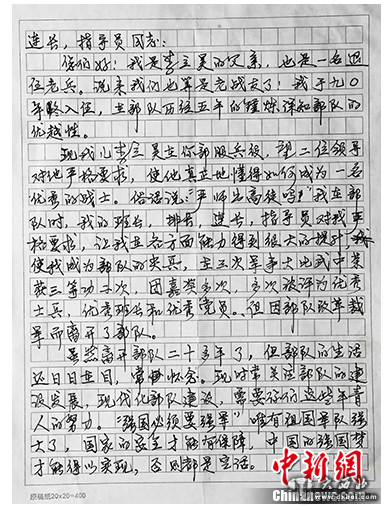 连长，指导员同志：
你们好！我是李立昊的父亲，也是一名退
伍老兵。说来我们也算是老战友了！我于九〇
年参入伍，在部队两位五年的锤炼深知部队的
优越性。
现我儿李立昊在你部服兵役，望二位领导
对他严格要求，使他真正地懂得如何成为一名
优秀的战士。俗话说："严师出高徒吗！"我在部
队时，我的班长，排长，连长，指导员对我严
格要求，让我在各方面能力得到很大的提升，
使我成为部队的尖兵，在三次军事大比武中荣
获三等功二次，团嘉奖多次，多次被评为优秀
士兵，优秀班长和优秀党员。但因部队改革裁
军而离开了部队。
虽然离开部队二十多年了，但部队的生活
还日日在目，常常怀念。现时常关注部队的建
设发展，现代化部队建设，需要你们这些年青
人的努力。"强国必须要强军"唯有祖国军队强
大了，国家的安全才能有保障，中国的强国梦
才能得以实现，否则都是空话。
原稿纸20×20=400
中新网